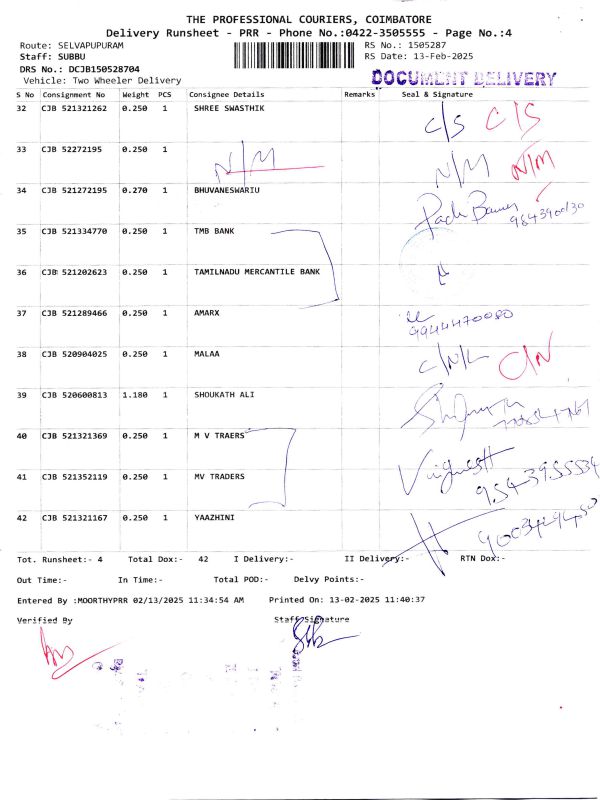 THE PROFESSIONAL COURIERS, COIMBATORE
Delivery Runsheet - PRR - Phone No.:0422-3505555 - Page No.:4
Route: SELVAPUPURAM RS No.: 1505287
Staff: SUBBU RS Date: 13-Feb-2025
DRS No.: DCJB150528704
Vehicle: Two Wheeler Delivery DOCUMENT DELIVERY
S No Consignment No Weight PCS Consignee Details Remarks Seal & Signature
32 CJB 521321262 0.250 1 SHREE SWASTHIK C/S C/S
33 CJB 52272195 0.250 1 N/M N/M N/M
34 CJB 521272195 0.270 1 BHUVANESWARIU
35 CJB 521334770 0.250 1 TMB BANK
36 CJB 521202623 0.250 1 TAMILNADU MERCANTILE BANK
37 CJB 521289466 0.250 1 AMARX 9944470080
38 CJB 520904025 0.250 1 MALAA C/N/L C/N
39 CJB 520600813 1.180 1 SHOUKATH ALI
40 CJB 521321369 0.250 1 M V TRAERS
41 CJB 521352119 0.250 1 MV TRADERS
42 CJB 521321167 0.250 1 YAAZHINI
Tot. Runsheet:- 4 Total Dox:- 42 I Delivery:- II Delivery:- RTN Dox:-
Out Time:- In Time:- Total POD:- Delvy Points:-
Entered By :MOORTHYPRR 02/13/2025 11:34:54 AM Printed On: 13-02-2025 11:40:37
Verified By Staff Signature